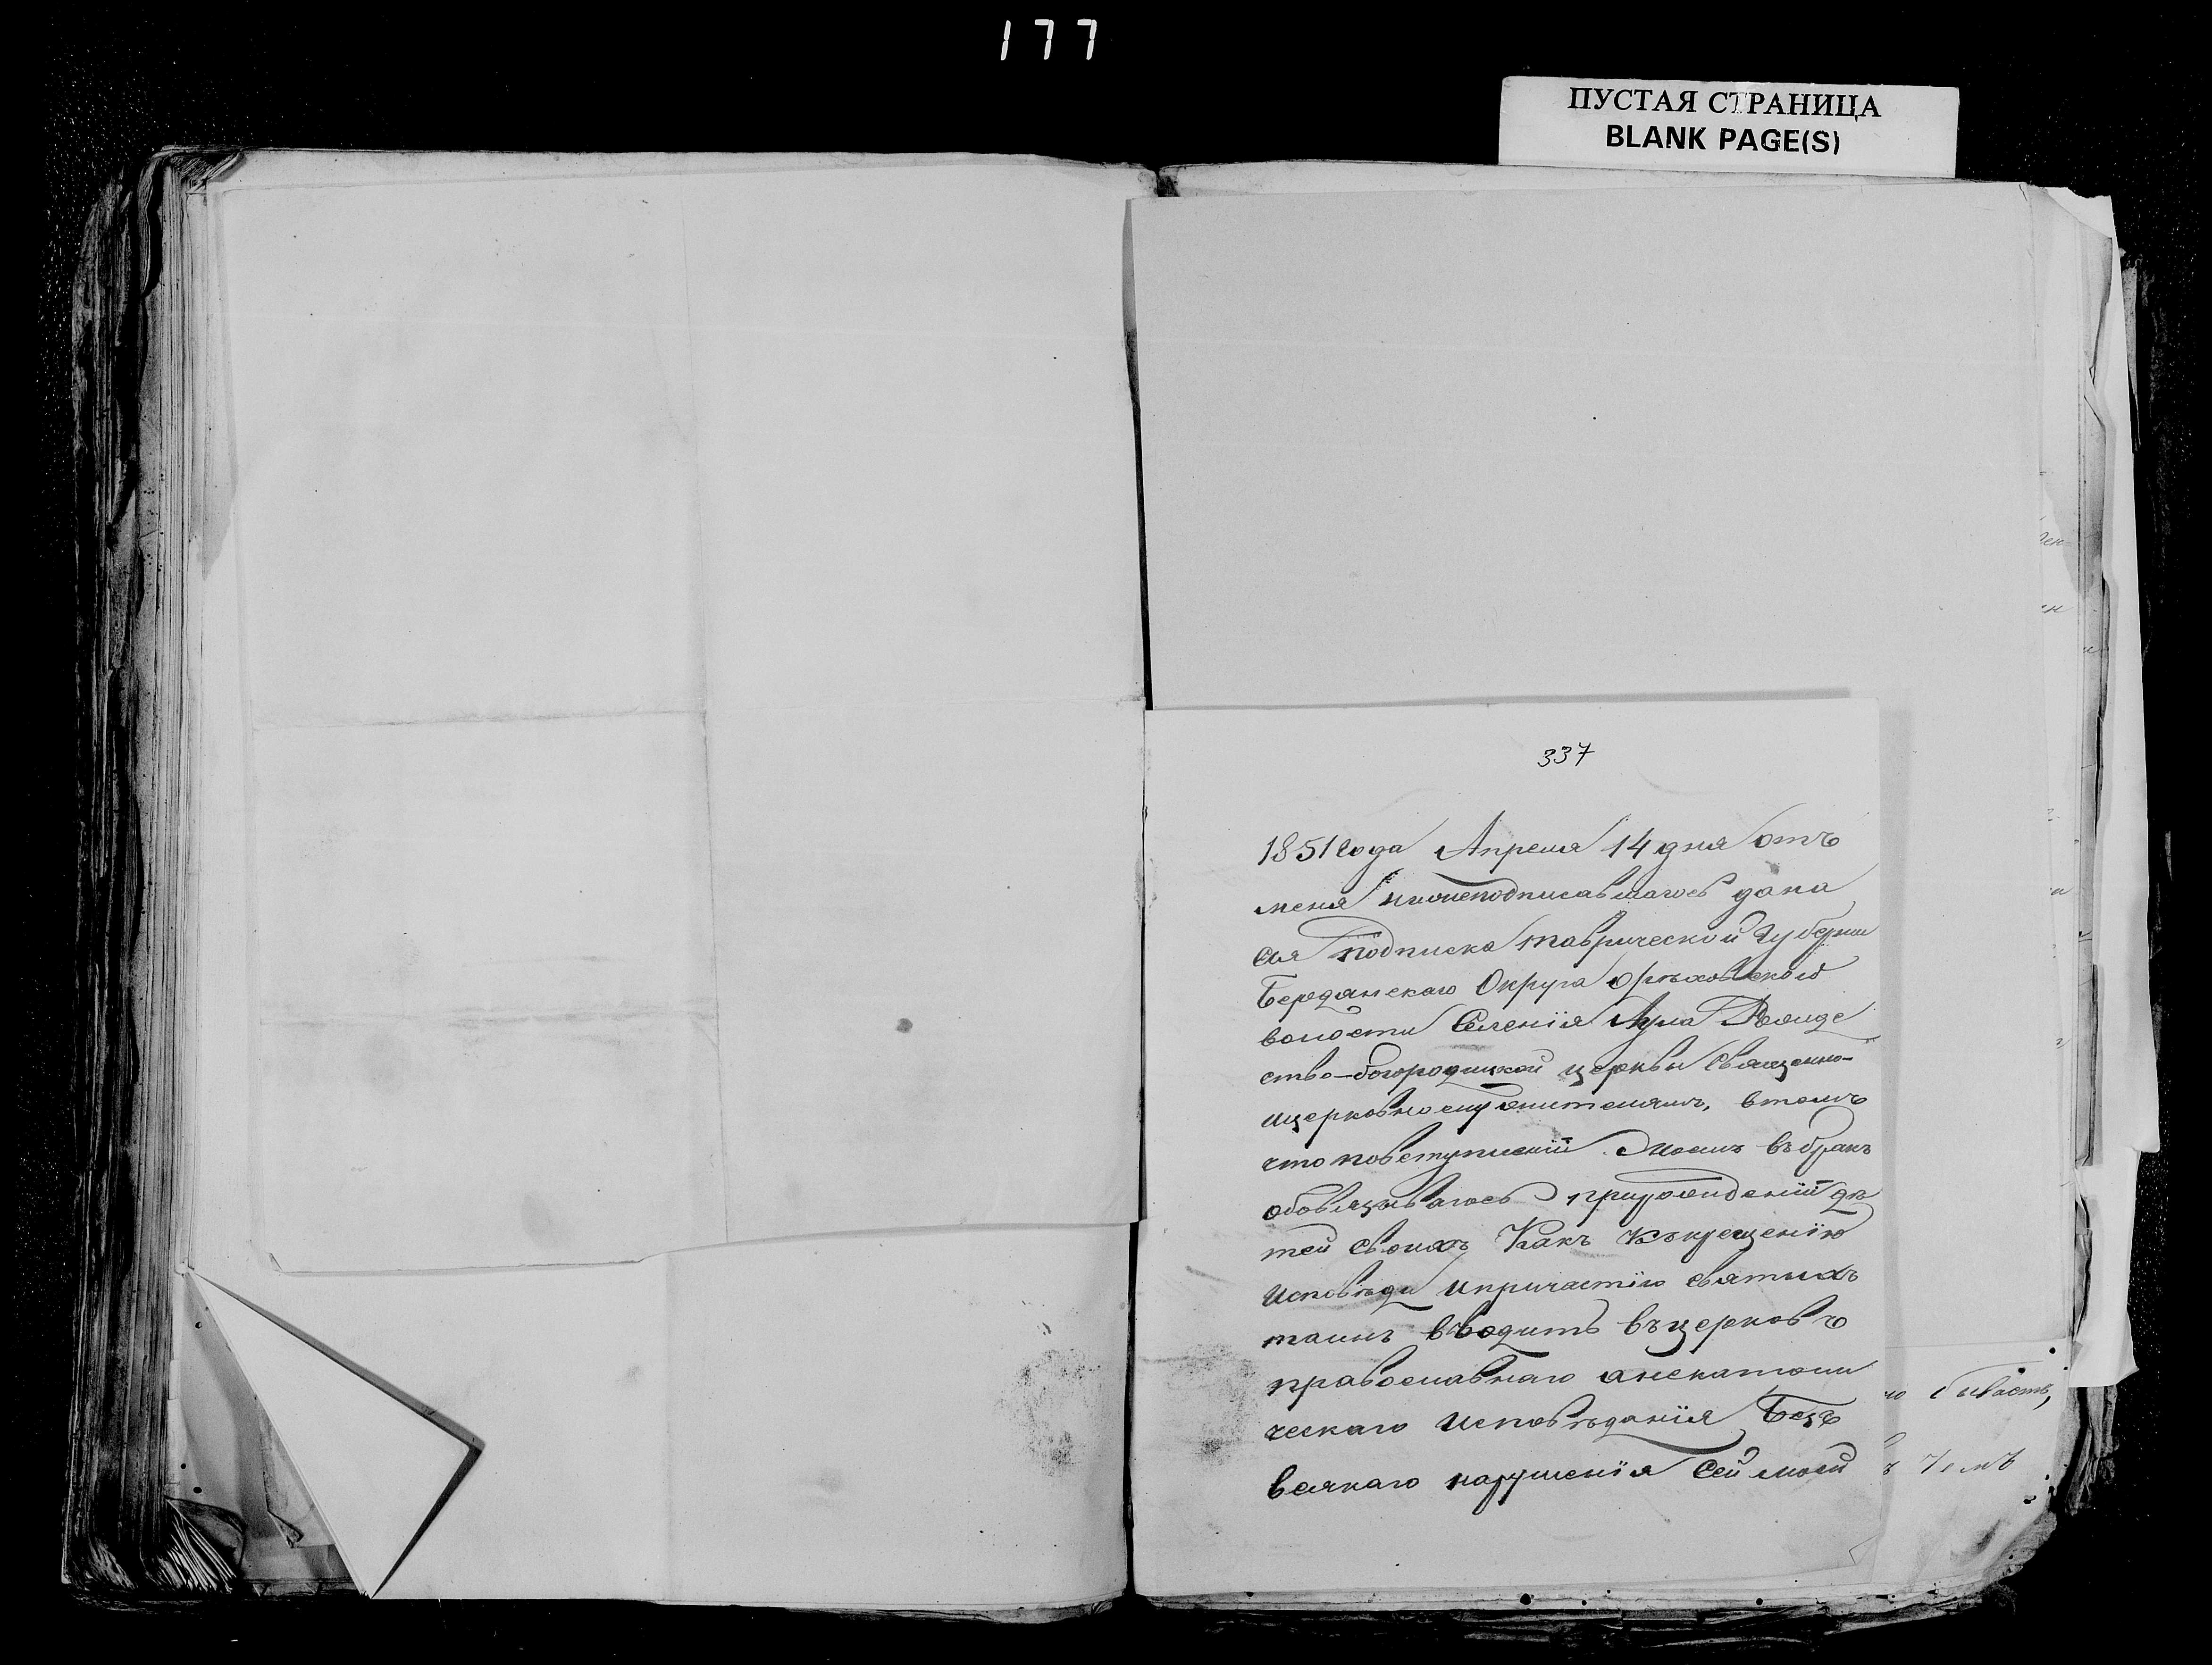 177
ПУСТАЯ СТРАНИЦА
BLANK PAGE(S)
337
1851 года Апреля 14 дня отъ
меня нижеподписавшагось дана
сия подписка таврической Губернии
Бердянскаго Округа Ореховской
волости Селенія Аула Рожде
ство-богородицкой церквы Священно-
ицерковнослужителямъ, втомъ
что повступленіи моемъ въбракъ
обовязываюсь прирождении дѣ
тей своихъ Какъ Къкрещенію
Исповѣди ипричастію святыхъ
таинъ вводить въцерковъ
православнаго анекатоли
ческаго исповѣданія Безъ
всякаго нарушенія Сей моей
бываетъ,
чемъ